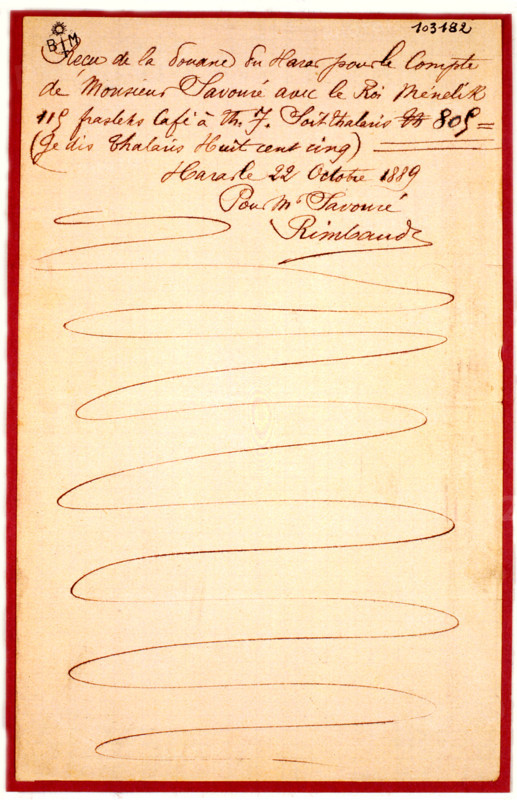 103182
BIM
Reçu de la Douane du Harar pour le Compte
de Monsieur Savouré avec le Roi Ménélik
115 fraslehs Café à Th. 7. Soit Thalaris Th 805=
(Je dis Thalaris Huit cent cinq)
Harar le 22 Octobre 1889
Pour Mr Savouré
Rimbaud